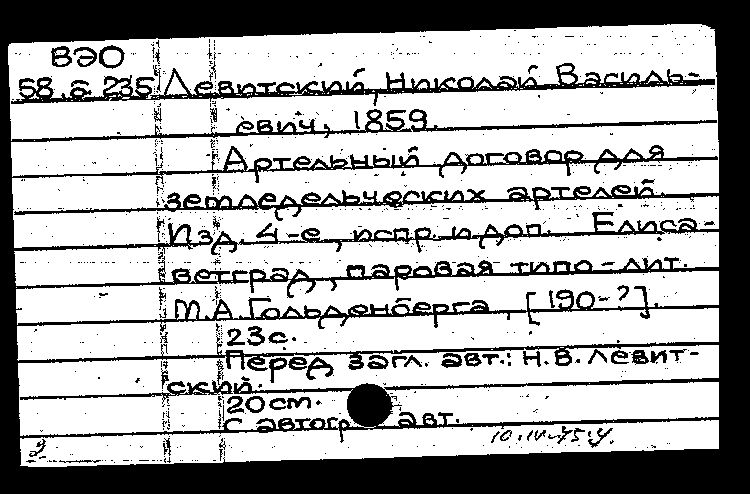 ВЭО
58.а 235 Левитский, Николай Василь-
евич, 1859.
Артельный договор для
земледельческих артелей.
Изд. 4-е, испр. и доп. Елиса-
ветград, паровая типо-лит.
М.А. Гольденберга, [190-?].
23 с.
Перед загл. авт.: Н.В. Левит-
ский.
20 cm.
С автогр. авт.
10.IV.75.